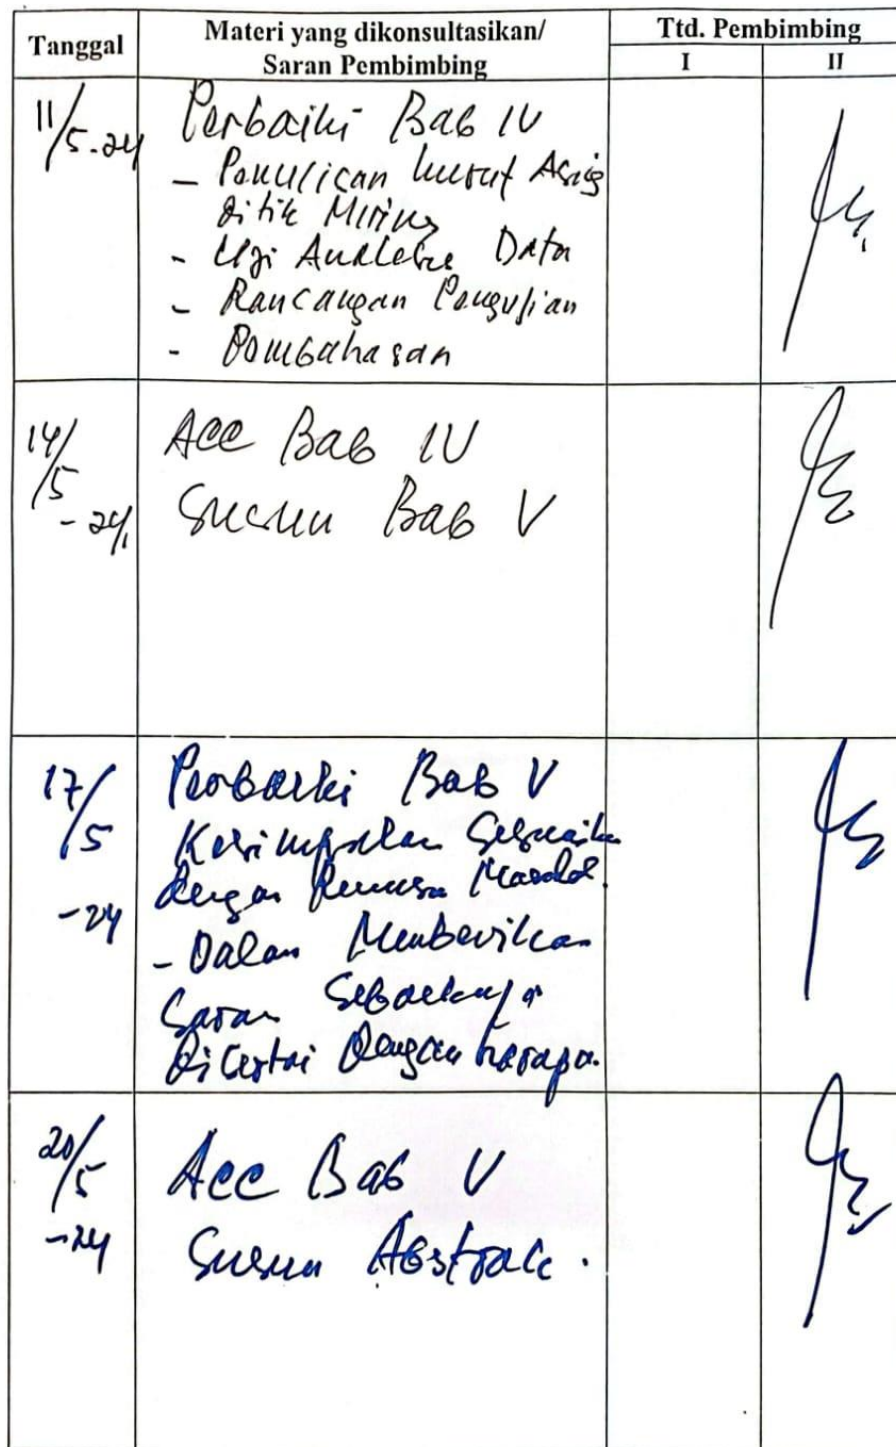 Tanggal
Materi yang dikonsultasikan/
Saran Pembimbing
Ttd. Pembimbing
I
II
11/5-24
Perbaiki Bab IV
- Penulisan huruf Asing
ditik Miring
- Uji Analisis Data
- Rancangan Pengujian
- Pembahasan
14/5-24
Acc Bab IV
Susun Bab V
17/5-24
Perbaiki Bab V
Kesimpulan Sesuaika
dengan Rumusa Masalah.
- Dalam Memberikan
Saran Sebaiknya
disertai dengan harapa.
20/5-24
Acc Bab V
Susun Abstrak.